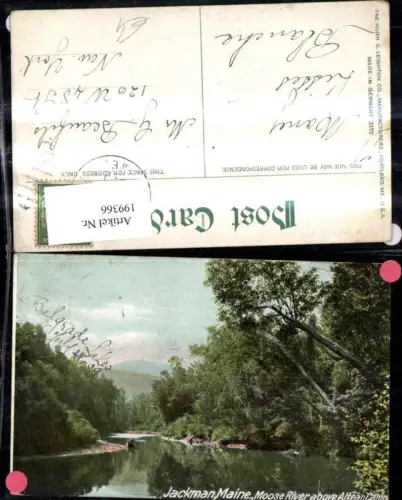 THE HUGH C. LEIGHTON CO., MANUFACTURERS, PORTLAND, ME., U.S.A.
MADE IN GERMANY
Post Card
THIS SPACE MAY BE USED FOR CORRESPONDENCE.
THIS SPACE FOR ADDRESS ONLY.
Many
Kisses
Blanche
Mr G
120 W 48 St
New York
Artikel Nr.
199366
Jackman, Maine, Moose River above Camp